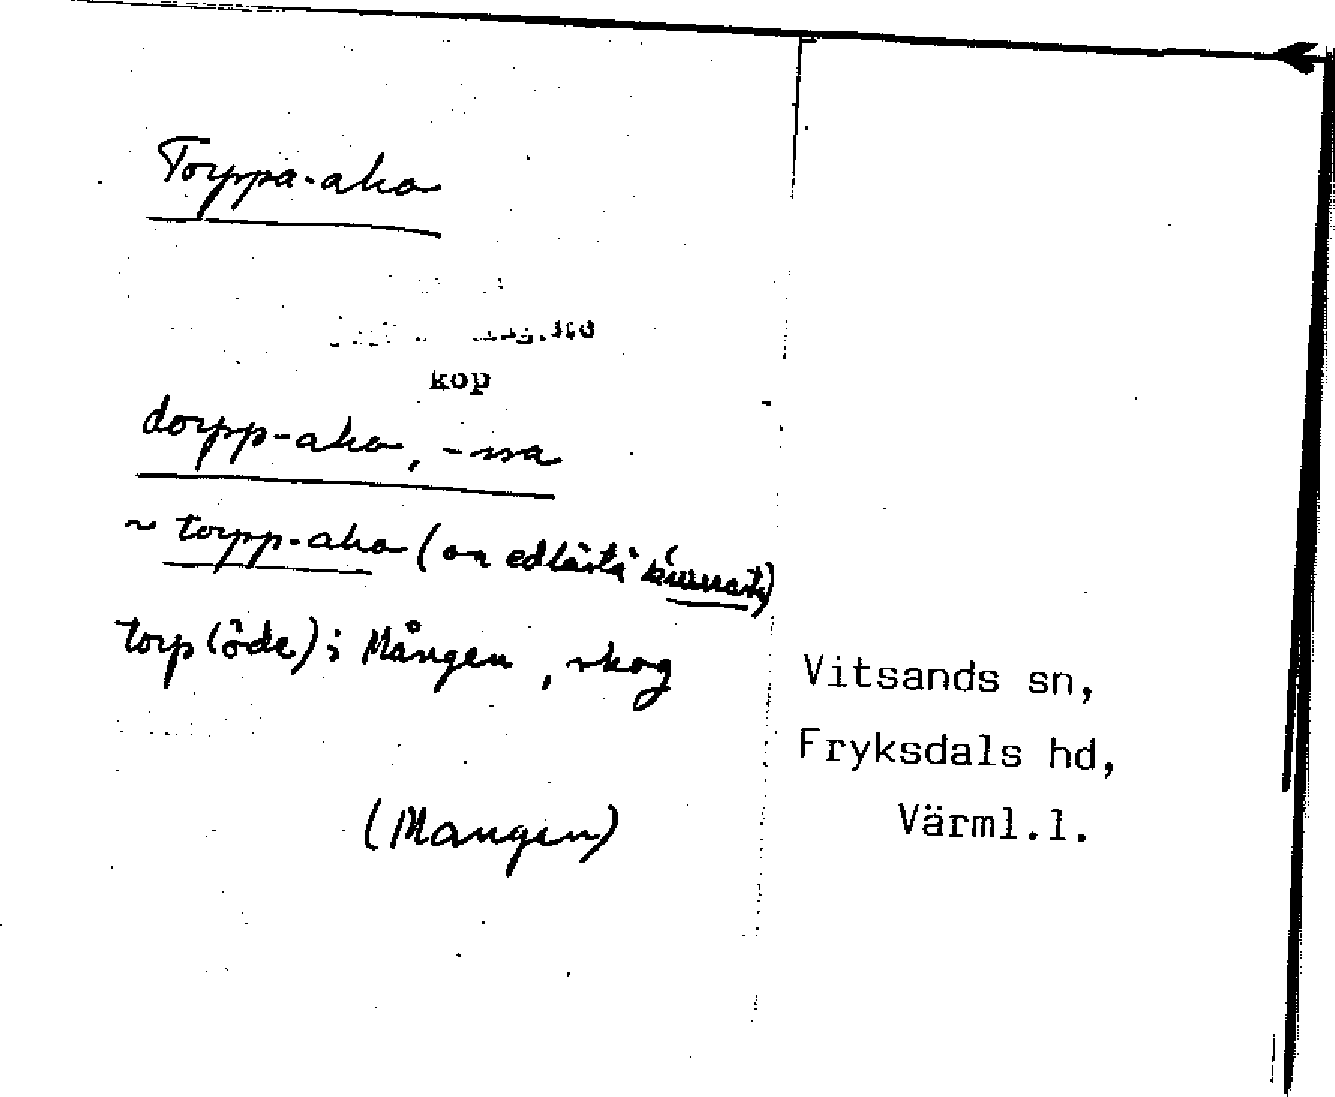 Torppa-aho
kop
dorpp-aho, -ssa
~ torpp-aho (on edlästä
torp (öde) i Mången, skog
(Mangen)
Vitsands sn,
Fryksdals hd,
Värml.l.